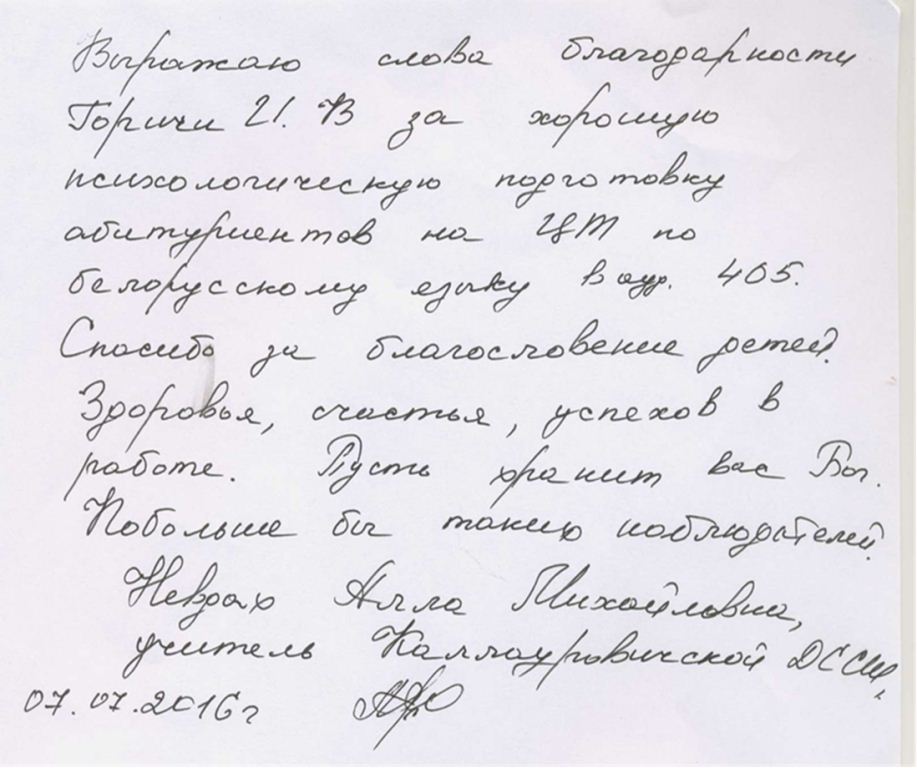 Выражаю слова благодарности
Горичи И. В за хорошую
психологическую подготовку
абитуриентов на ЦТ по
белорусскому языку в ауд. 405.
Спасибо за благословение детей.
Здоровья, счастья, успехов в
работе. Пусть хранит вас Бог.
Побольше бы таких наблюдателей.
Алла Михайловна,
учитель Каллауровичской ДССШ,
07.07.2016г